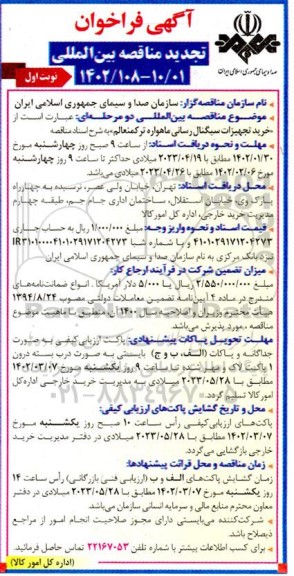 آگهی فراخوان
تجدید مناقصه بین‌المللی
۱۴۰۲/۱۰۸-۱۰/۰۱
صدا و سیمای جمهوری اسلامی ایران
نوبت اول
نام سازمان مناقصه‌گزار: سازمان صدا و سیمای جمهوری اسلامی ایران
موضوع مناقصــه بین‌المللــی دو مرحلــه‌ای: عبارت است از
«خرید تجهیزات سیگنال رسانی ماهواره ترکمنعالم» به شرح اسناد مناقصه
مهلت و نحوه دریافت اسناد: از ساعت ۹ صبح روز چهارشنبه مورخ
۱۴۰۲/۰۱/۳۰ مطابق با ۲۰۲۳/۰۴/۱۹ میلادی حداکثر تا ساعت ۹ روز چهارشنبه
مورخ ۱۴۰۲/۰۲/۰۶ مطابق با ۲۰۲۳/۰۴/۲۶ میلادی می‌باشد.
محل دریافت اسناد: تهران، خیابان ولی عصر، نرسیده به چهارراه
پارک‌وی، خیابان استقلال، ساختمان اداری جام جم، طبقه چهارم
مدیریت خرید خارجی، اداره کل امور کالا
قیمت اسناد و نحوه واریز وجه: مبلغ ۱/۰۰۰/۰۰۰ ریال به حساب جاری
۴۱۰۱۰۲۹۱۷۱۲۰۴۲۷۳ و با شماره شبا
نزد بانک مرکزی به نام سازمان صدا و سیمای جمهوری اسلامی ایران
میزان تضمین شرکت در فرآیند ارجاع کار:
مبلغ ۲/۵۵۰/۰۰۰/۰۰۰ ریال یا ۵/۰۰۰ دلار آمریکا. انواع ضمانت‌نامه‌های
مندرج در ماده ۴ آیین‌نامه تضمین معاملات دولتی مصوب ۱۳۹۴/۸/۲۴
هیأت محترم وزیران و اصلاحیه سال ۱۴۰۰ آن منطبق با ماهیت موضوع
مناقصه، مورد پذیرش می‌باشد.
مهلت تحویل پاکات پیشنهادی: پاکت ارزیابی کیفی به صورت
جداگانه و پاکات (الف، ب و ج) بایستی به صورت درب بسته درون
۱ پاکت، لاک و مهر شده تا ساعت ۹ روز یکشنبه مورخ ۱۴۰۲/۰۳/۰۷
مطابق با ۲۰۲۳/۰۵/۲۸ میلادی به مدیریت خرید خارجی اداره کل
امور کالا تسلیم گردد.
محل و تاریخ گشایش پاکت‌های ارزیابی کیفی:
پاکت‌های ارزیابی کیفی رأس ساعت ۱۰ صبح روز یکشنبه مورخ
۱۴۰۲/۰۳/۰۷ مطابق با ۲۰۲۳/۰۵/۲۸ میلادی در دفتر مدیریت خرید
خارجی بازگشایی می‌گردد.
زمان مناقصه و محل قرائت پیشنهادها:
زمان گشایش پاکت‌های الف و ب (ارزیابی فنی بازرگانی) رأس ساعت ۱۴
روز یکشنبه مورخ ۱۴۰۲/۰۳/۰۷ مطابق با ۲۰۲۳/۰۵/۲۸ میلادی در دفتر
معاون محترم منابع مالی و سرمایه انسانی سازمان می‌باشد.
شرکت‌کننده می‌بایستی دارای مجوز صلاحیت انجام امور از مراجع
ذیصلاح باشد.
برای کسب اطلاعات بیشتر با شماره تلفن ۲۲۱۶۷۰۵۳ تماس حاصل فرمائید.
(اداره کل امور کالا)